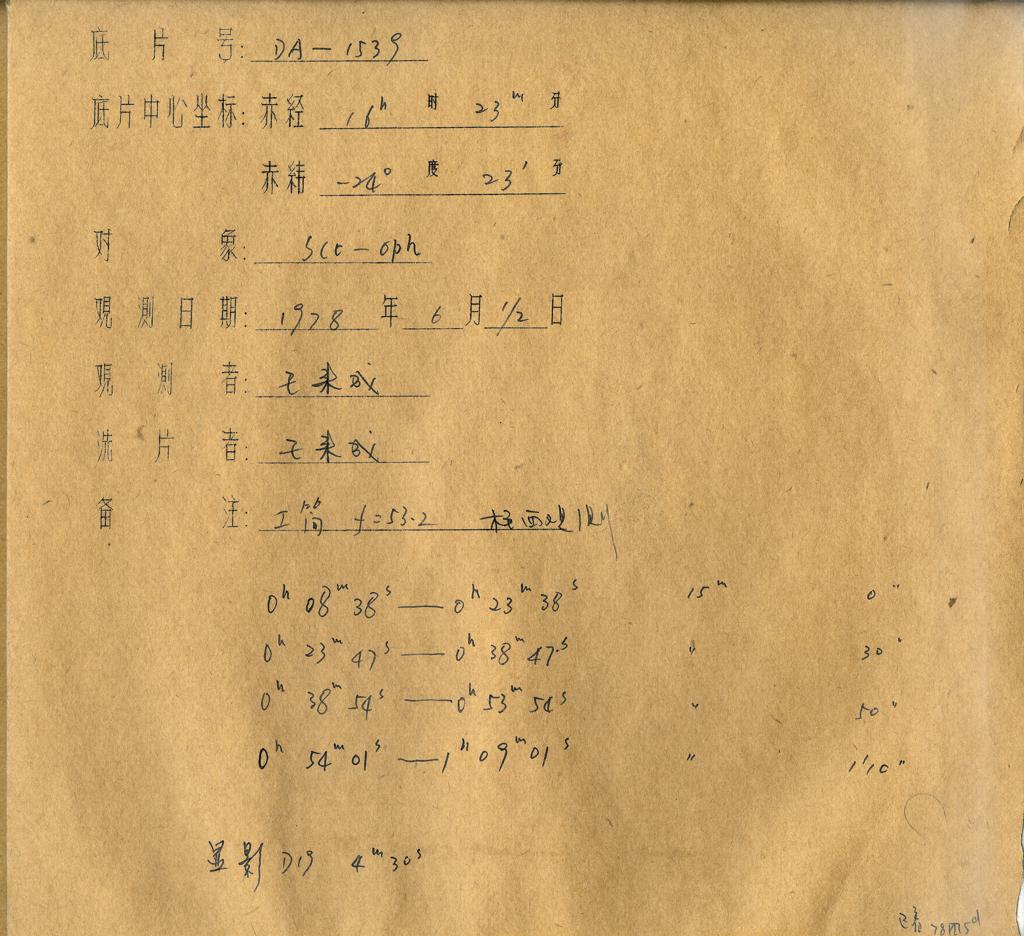 底片号: DA-1539
底片中心坐标: 赤経 16ʰ 时 23ᵐ 分
赤緯 -24° 度 23′ 分
对象: Sco-oph
观测日期: 1978 年 6 月 1/2 日
观测者: 王来成
洗片者: 王来成
备注: 工筒 f=53.2 极西观测
0ʰ 08ᵐ 38ˢ — 0ʰ 23ᵐ 38ˢ 15ᵐ 0″
0ʰ 23ᵐ 47ˢ — 0ʰ 38ᵐ 47ˢ 〃 30″
0ʰ 38ᵐ 54ˢ — 0ʰ 53ᵐ 54ˢ 〃 50″
0ʰ 54ᵐ 01ˢ — 1ʰ 09ᵐ 01ˢ 〃 1′10″
显影 D19 4ᵐ 30ˢ